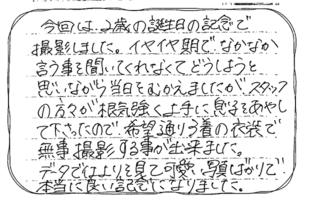 今回は、2歳の誕生日の記念で
撮影しました。イヤイヤ期でなかなか
言う事を聞いてくれなくてどうしようと
思いながら当日をむかえましたが、スタッフ
の方々が根気強く上手に息子をあやし
て下さったので、希望通り3着の衣装で
無事撮影する事が出来ました。
データではよりを見て可愛い写真ばかりで
本当に良い記念になりました。